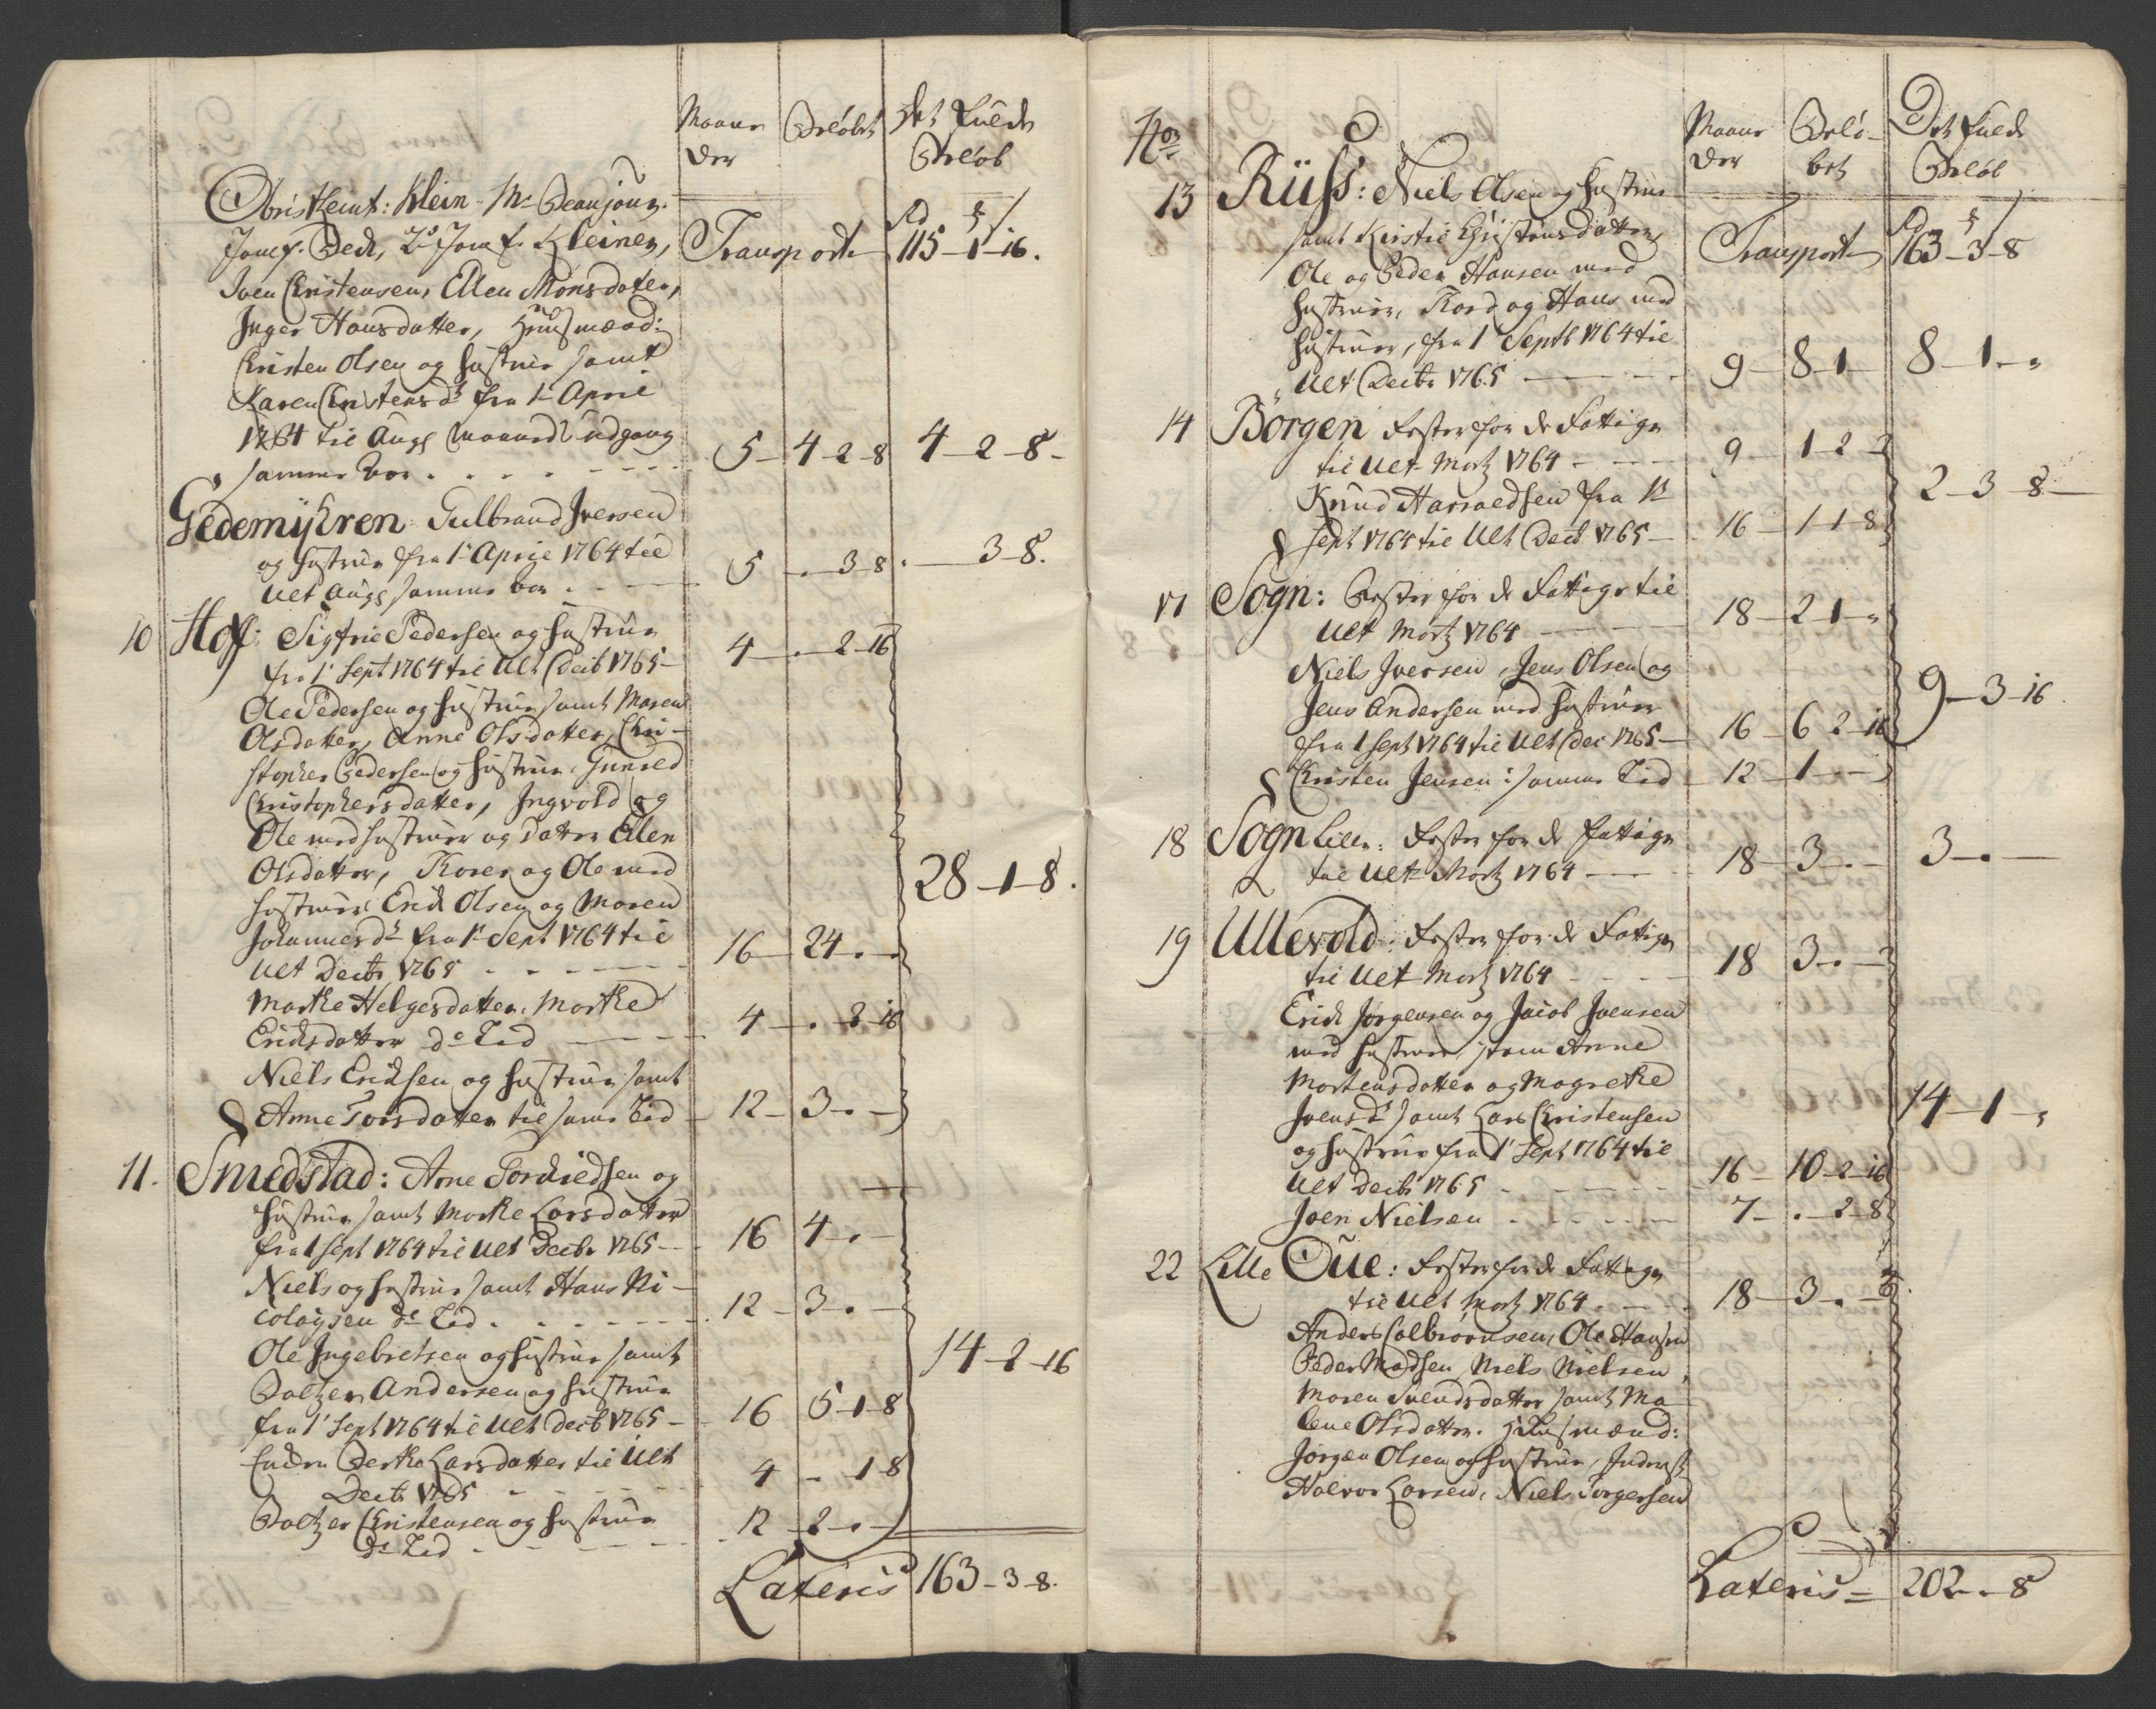 Maane
der
Beløbet
Det fulde
Beløb
Obristleint: Klein Mr Beaujoun.
Jomf. Bech, 2de Jomf. Kleiner,
Iven Christensen, Ellen Monsdatter,
Inger Hansdatter, Huusmænd:
Christen Olsen og Hustrue samt
Karen Christensdr fra 1te April
1764 til Augs Maaneds Udgang
samme Aar . . . . 5 - 4-2-8 4-2-8-
Transport Rd 115-1-16.
Gedemyhren Gulbrand Iversen
og Hustrue fra 1te April 1764 til
Ult Augs samme Aar . . 5 - . 3-8 . 3-8.
10 Hoff: Sigfrie Pedersen og Hustrue
fra 1te Sept 1764 til Ult Decb 1765 - 4 - . 2-16
Ole Pedersen og Hustrue samt Maren
Olsdatter, Anne Olsdatter, Chri-
stopher Pedersen og Hustrue Gunild
Christophersdatter, Ingvold og
Ole med Hustruer og Datter Ellen
Olsdatter, Thorer og Ole med
Hustruer Erich Olsen og Maren
Johannesdr fra 1te Sept 1764 til
Ult Decbr 1765 - - - 16 - 24 . -
28-1-8.
Marthe Helgesdatter, Marthe
Erichsdatter do Tid - 4 - . 2-16
Niels Erichsen og Hustrue samt
Anne Torsdatter til samme Tid - 12 - 3 . -
11. Smedstad: Arne Torchildsen og
Hustrue samt Marthe Larsdatter
fra 1 Sept 1764 til Ult Decbr 1765 - 16 4 . -
Niels og Hustrue samt Hans Ni-
colaysen do Tid . . . . 12 - 3 . -
Ole Ingebretsen og Hustrue samt
14-2-16
Baltzer Andersen og Hustrue
fra 1te Sept 1764 til Ult Decb 1765 - 16 5-1-8
Enchen Berthe Larsdatter til Ult
Decbr 1765 - - - 4 - . 1 8
Baltzer Christensen og Hustrue
do Tid - - - 12 - 2 . -
Lateris 163-3-8.
No
Maane
der
Belø-
bet
Det fulde
Beløb
13 Rüss: Niels Olsen og Hustrue
samt Kirstie Christensdatter,
Transport Rd 163-3-8
Ole og Peder Hansen med
Hustruer, Thord og Hans med
Hustruer, fra 1te Septb 1764 til
Ult Decbr 1765 - - - 9 - 8-1 - 8-1-
14 Börgen Rester for de Fattige
til Ult Martz 1764 - - 9 - 1-2 -
2-3-8-
Knud Harraldsen fra 1te
Sept 1764 til Ult Decb 1765 - 16 - 1-1-8
17 Sogn: Rester for de Fattige til
Ult Martz 1764 - - - 18 - 2-1 -
Niels Iversen, Jens Olsen og
Jens Andersen med Hustruer
9-3-16
fra 1 Sept 1764 til Ult Dec 1765 - 16 - 6-2-16
Christen Jensen i samme Tid - 12 - 1 . -
18 Sogn Lille: Rester for de Fattige
til Ult Martz 1764 - - 18 - 3 . - 3 - . -
19 Ullevold: Rester for de Fattige
til Ult Martz 1764 - - 18 3 . -
Erich Jørgensen og Jacob Joensen
med Hustruer, item Anne
Mortensdatter og Magrethe
Joensdr samt Lars Christensen
14-1-
og Hustrue fra 1te Sept 1764 til
Ult Decbr 1765 - - - 16 - 10-2-16
Joen Nielsen - - - 7 - . 2-8
22 Lille Öue: Rester for de Fattige
til Ult Martz 1764 - - 18 - 3 . -
Anders Colbiörnsen, Ole Hansen
Peder Madsen, Niels Nielsen,
Maren Svendsdatter samt Ma-
lene Olsdatter. Huusmænd:
Jørgen Olsen og Hustrue, Inderst
Halvor Larsen, Niels Torgersen
Lateris = 202 - . - 8